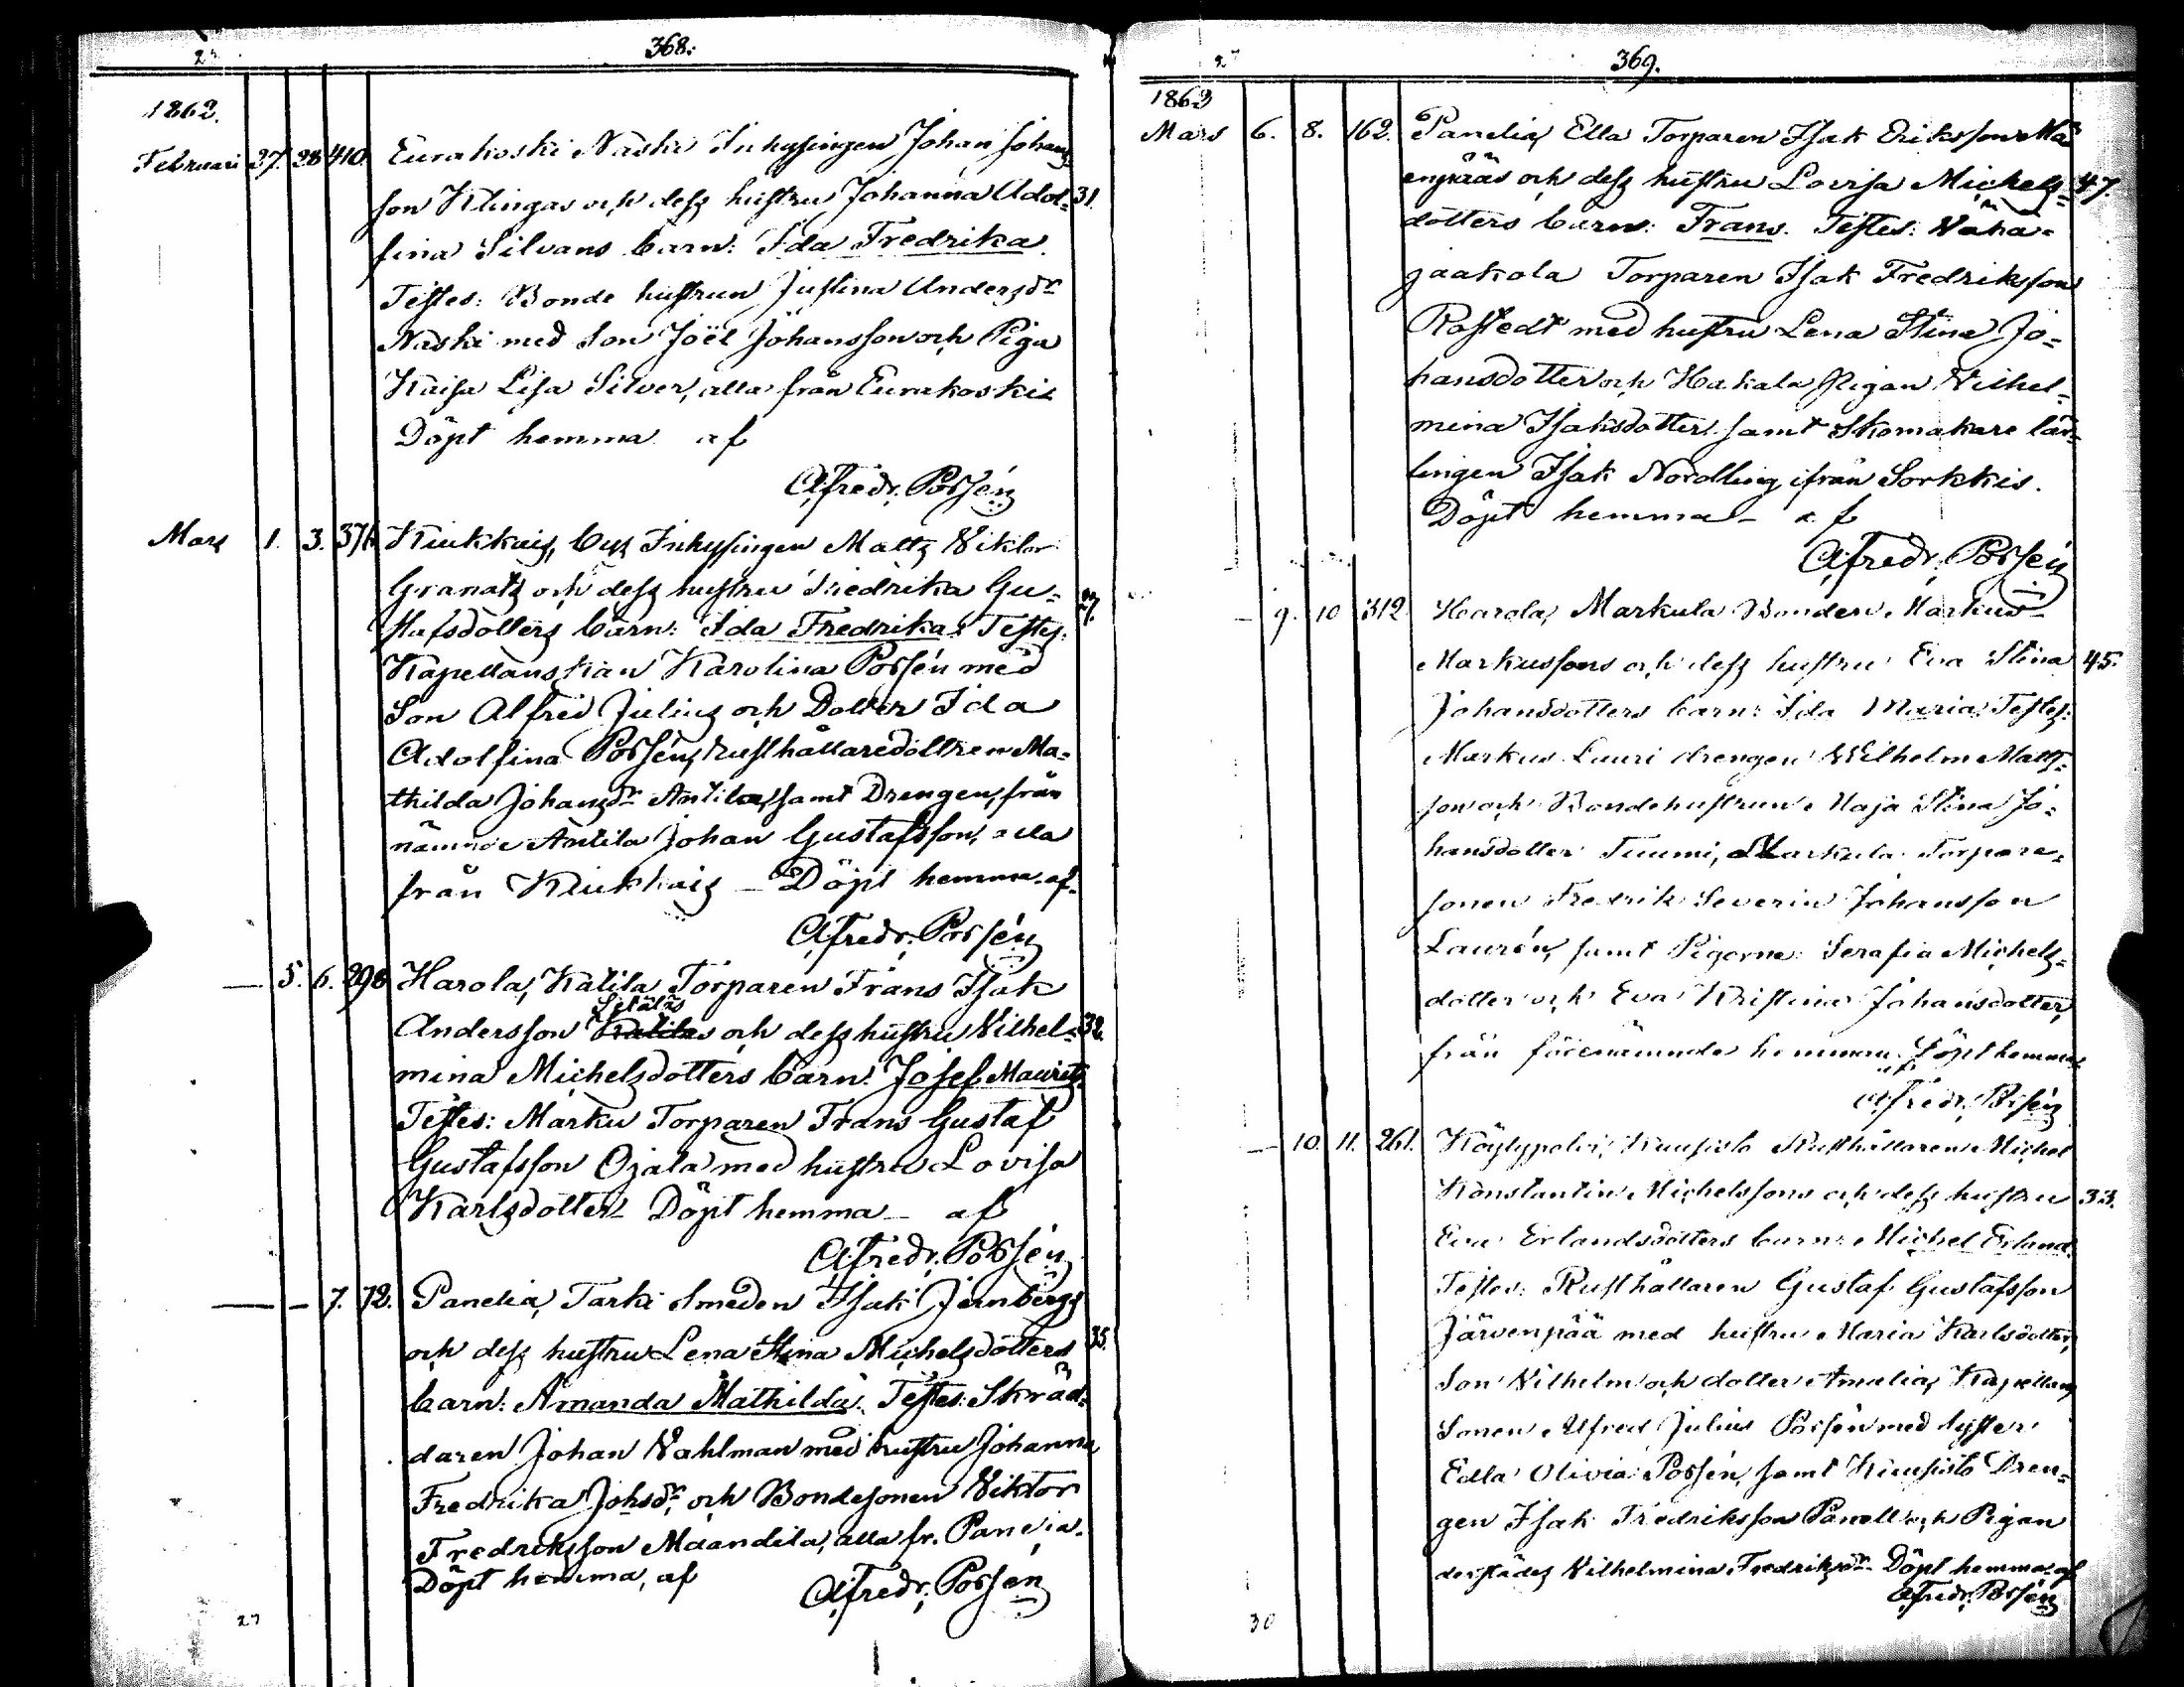 368.
1862.
Februari 27. 28 410. Eurakoski Naski Inhysingen Johan Johans-
son Klingas och dess hustru Johanna Adol- 31.
fina Silvans barn: Ida Fredrika.
Testes: Bonde hustrun Justina Andersdr
Naski med Son Joël Johansson och Piga
Kaisa Lisa Silver, alla från Eurakoskis
Döpt hemma af
A. Fredr. Possén
Mars 1. 3. 371. Kiukkais, bys Inhysingen Matts Viktor
Granats och dess hustru Fredrika Gu-
stafsdotters barn: Ida Fredrika. Testes: 27.
Kapellanskan Karolina Possén med
Son Alfred Julius och Dotter Ida
Adolfina Possén, Rusthållaredottren Ma-
thilda Johansdr Antila, samt Drengen, från
nämnde Antila Johan Gustafsson, alla
från Kiukkais – Döpt hemma af
A. Fredr. Possén
— 5. 6. 298 Harola, Katila Torparen Frans Isak
Setäläs
Andersson Katilas och dess hustru Vilhel- 32.
mina Michelsdotters barn: Josef Maurits
Testes: Marku Torparen Frans Gustaf
Gustafsson Ojala med hustru Lovisa
Karlsdotter – Döpt hemma – af
A. Fredr. Possén
— – 7. 72. Panelia, Tarki Smeden Isak Jernbergs
och dess hustru Lena Stina Michelsdotters 35.
barn: Amanda Mathilda. Testes: Skräd-
daren Johan Vahlman med hustru Johanna
Fredrika Johsdr, och Bondesonen Viktor
Fredriksson Maandila, alla fr. Panelia.
Döpt hemma, af A. Fredr. Possén
369.
1862
Mars 6. 8. 162. Panelia, Ella Torparen Isak Eriksson Mä-
enpääs och dess hustru Lovisa Michels- 47.
dotters barn: Frans. Testes: Vähä-
jaakola Torparen Isak Fredriksson
Rostedt med hustru Lena Stina Jo-
hansdotter och Hakala Pigan Vilhel-
mina Isaksdotter samt Skomakare lär-
lingen Isak Nordling ifrån Sorkkis.
Döpt hemma – af
A. Fredr. Possén
– 9. 10 312. Harola, Markula Bonden Markus
Markussons och dess hustru Eva Stina 45.
Johansdotters barn: Ida Maria. Testes:
Markus Lauri drengen Wilhelm Matts-
son och Bondehustrun Maja Stina Jo-
hansdotter Tuumi, Markula Torpare-
sonen Fredrik Severin Johansson
Laurén, samt Pigorna: Serafia Michels-
dotter och Eva Kristina Johansdotter,
från förenämnda hemman. Döpt hemma
af
A. Fredr. Possén
— 10. 11. 261. Köylypolvi, Kuusisto Rusthållaren Michel
Konstantin Michelssons och dess hustru 33.
Eva Erlandsdotters barn: Michel Erland.
Testes: Rusthållaren Gustaf Gustafsson
Järvenpää med hustru Maria Karlsdotter,
Son Vilhelm och dotter Amalia, Kapellans
Sonen Alfred Julius Possén med syster
Edla Olivia Possén, samt Kuusisto Dren-
gen Isak Fredriksson Panell och Pigan
derstädes Vilhelmina Fredriksdr – Döpt hemma af
A. Fredr. Possén
30